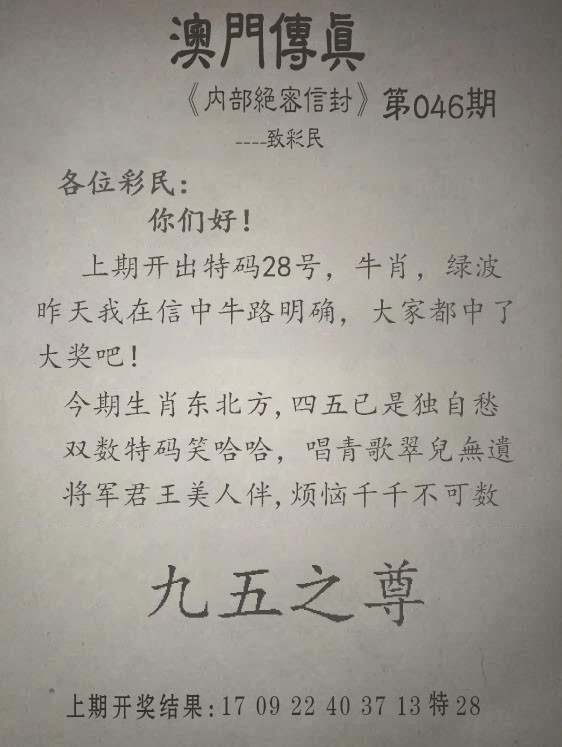 澳門傳眞
《内部絕密信封》第046期
----致彩民
各位彩民：
你们好！
上期开出特码28号，牛肖，绿波
昨天我在信中牛路明确，大家都中了
大奖吧！
今期生肖东北方,四五已是独自愁
双数特码笑哈哈，唱青歌翠兒無遺
将军君王美人伴,烦恼千千不可数
九五之尊
上期开奖结果:17 09 22 40 37 13 特 28